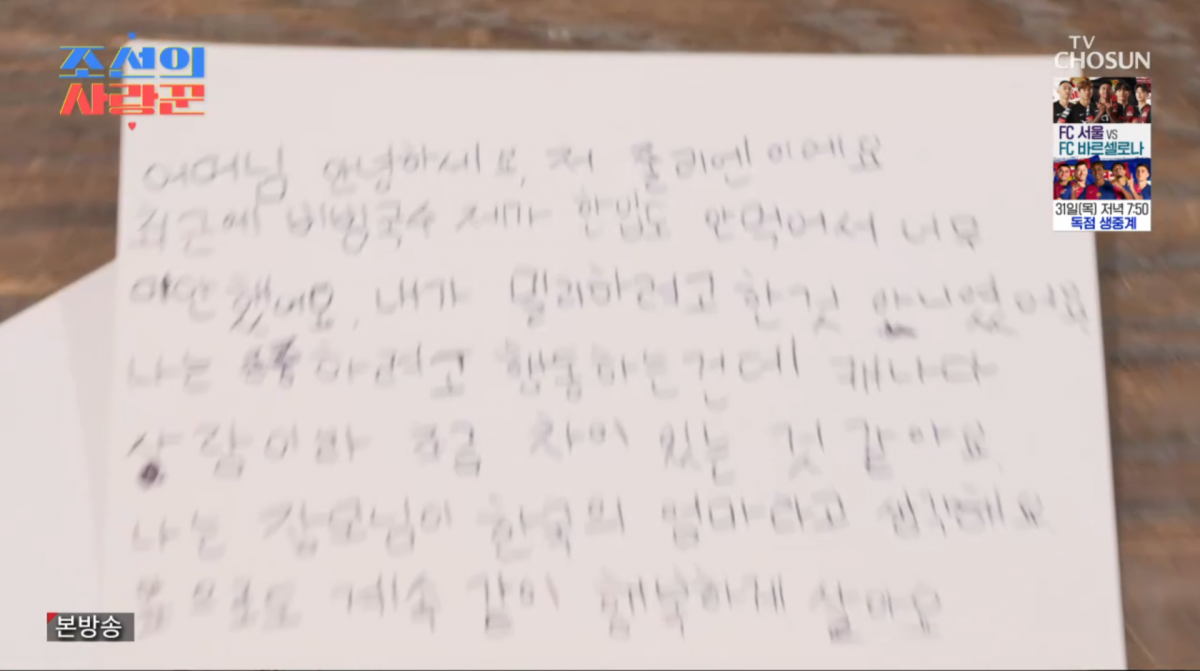 조선의
사랑꾼
TV
CHOSUN
FC 서울 VS
FC 바르셀로나
31일(목) 저녁 7:50
독점 생중계
어머님 안녕하세요, 저 줄리엔이에요
최근에 비빔국수 제가 한입도 안먹어서 너무
미안했어요. 내가 멀리하려고 한것 안니였어요
나는 하려고 행동하는건데 캐나다
사람이라 조금 차이 있는 것 같아요.
나는 장모님이 한국의 엄마라고 생각해요
앞으로도 계속 같이 행복하게 살아요
본방송